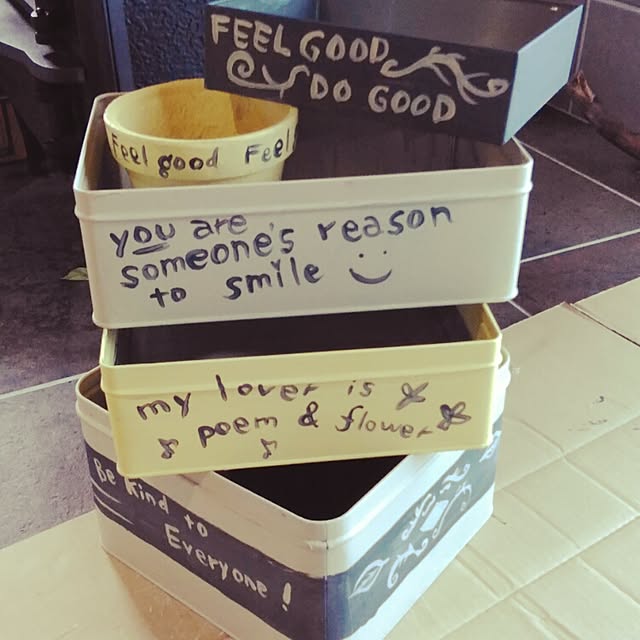 FEEL GOOD
DO GOOD
Feel good Feel
you are
someone's reason
to smile
my lover is
poem & flower
Be Kind to
Everyone!